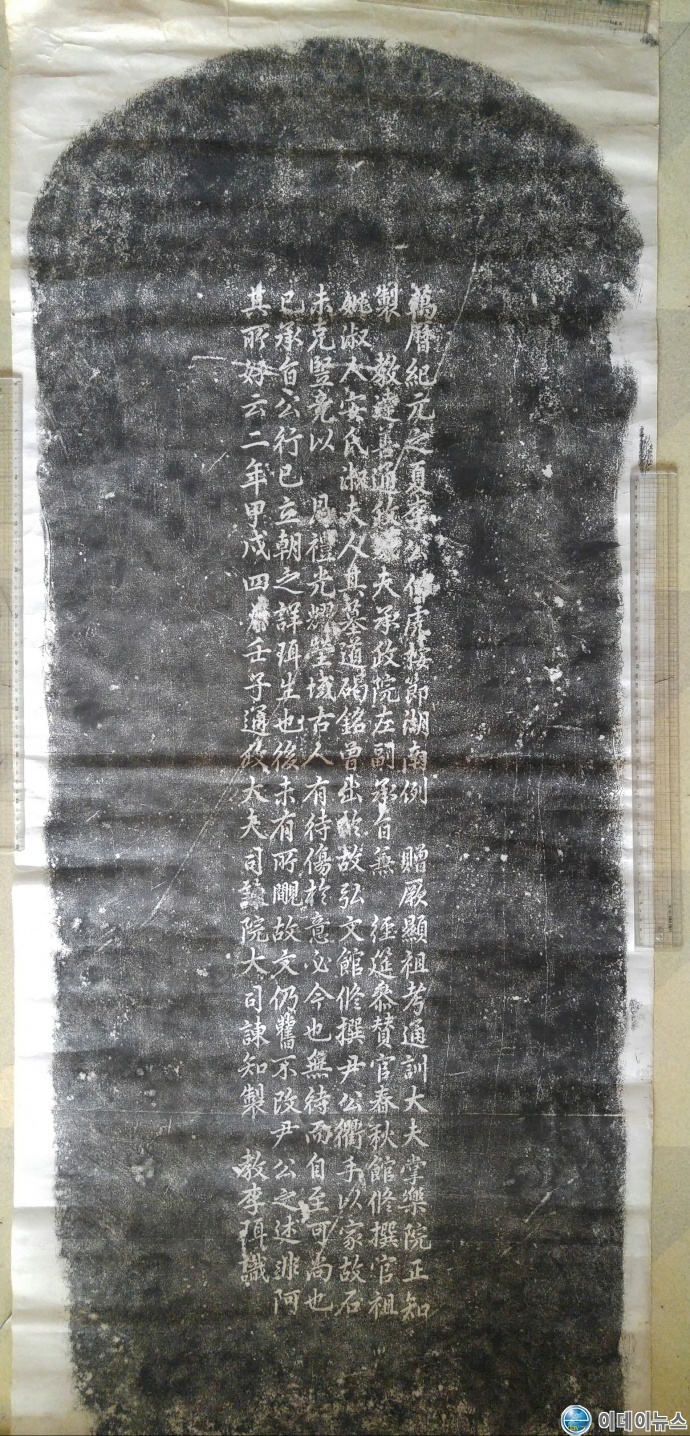 萬曆紀元之夏李公 按節湖南例 贈厥顯祖考通訓大夫掌樂院正知
製 教達善通政 夫承政院左副承旨兼 經筵參贊官春秋館修撰官祖
妣淑人安氏淑夫人其墓道碣銘曾出於故弘文館修撰尹公衢手以家故石
未克豎竟以 恩禮光耀塋域古人有待傷於意必今也無待而自至可尚也
已承旨公行已立朝之詳珥生也後未有所覵故文仍舊不改尹公之述非阿
其所好云二年甲戌四月壬子通政大夫司諫院大司諫知製 教李珥識
이데이뉴스